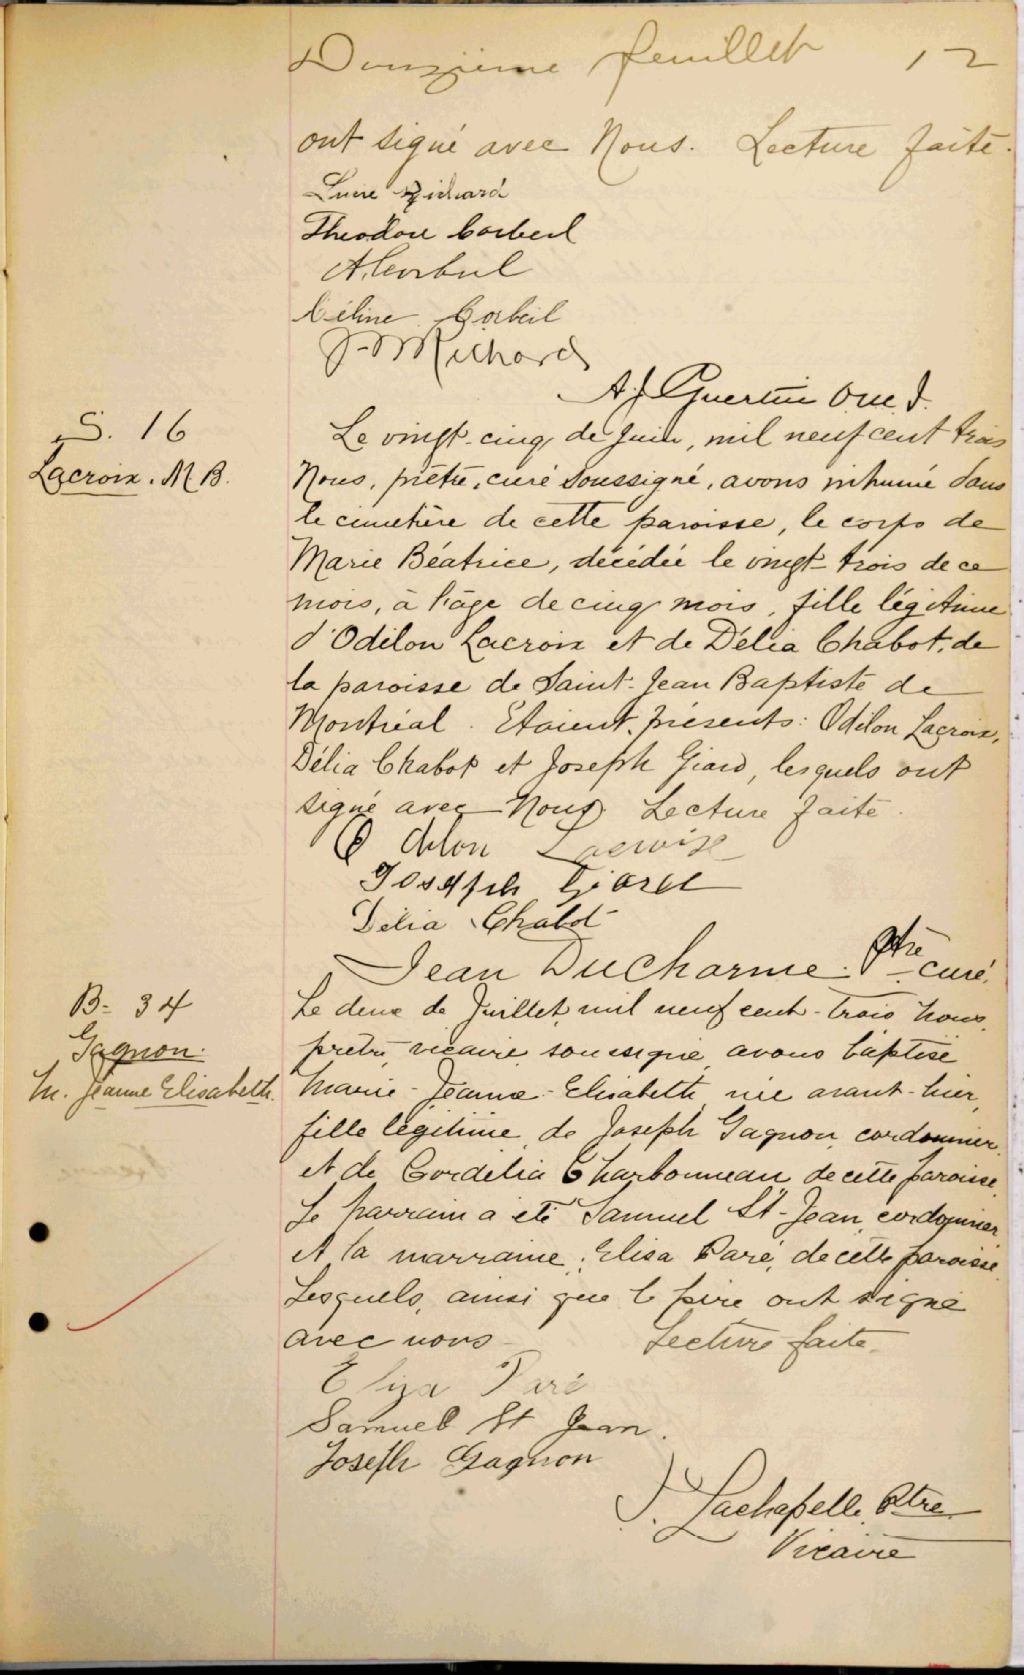 Douzième feuillet 12
ont signé avec Nous. Lecture faite.
Richard
Theodore Corbeil
A. Corbeil
Céline Corbeil
J-M Richard
A. J. Guertin
S. 16
Lacroix. M B.
Le vingt-cinq de Juin, mil neuf cent trois
Nous, prêtre, curé soussigné, avons inhumé dans
le cimetière de cette paroisse, le corps de
Marie Béatrice, décédée le vingt-trois de ce
mois, à l'âge de cinq mois, fille légitime
d'Odilon Lacroix et de Délia Chabot, de
la paroisse de Saint-Jean Baptiste de
Montréal. Etaient présents: Odilon Lacroix,
Délia Chabot et Joseph Giard, lesquels ont
signé avec Nous. Lecture faite.
Odilon Lacroix
Joseph Giard
Délia Chabot
Jean DuCharme. Ptre curé.
B- 34
Gagnon.
M. Jeanne Elisabeth.
Le deux de Juillet, mil neuf cent-trois Nous,
prêtre, vicaire soussigné avons baptisé
Marie-Jeanne-Elisabeth née avant-hier,
fille légitime de Joseph Gagnon, cordonnier,
et de Cordélia Charbonneau de cette paroisse.
Le parrain a été Samuel St-Jean, cordonnier
et la marraine, Elisa Paré, de cette paroisse.
Lesquels, ainsi que le père ont signé
avec nous- Lecture faite.
Eliza Paré
Samuel St Jean.
Joseph Gagnon
J. Lachapelle, Ptre
Vicaire